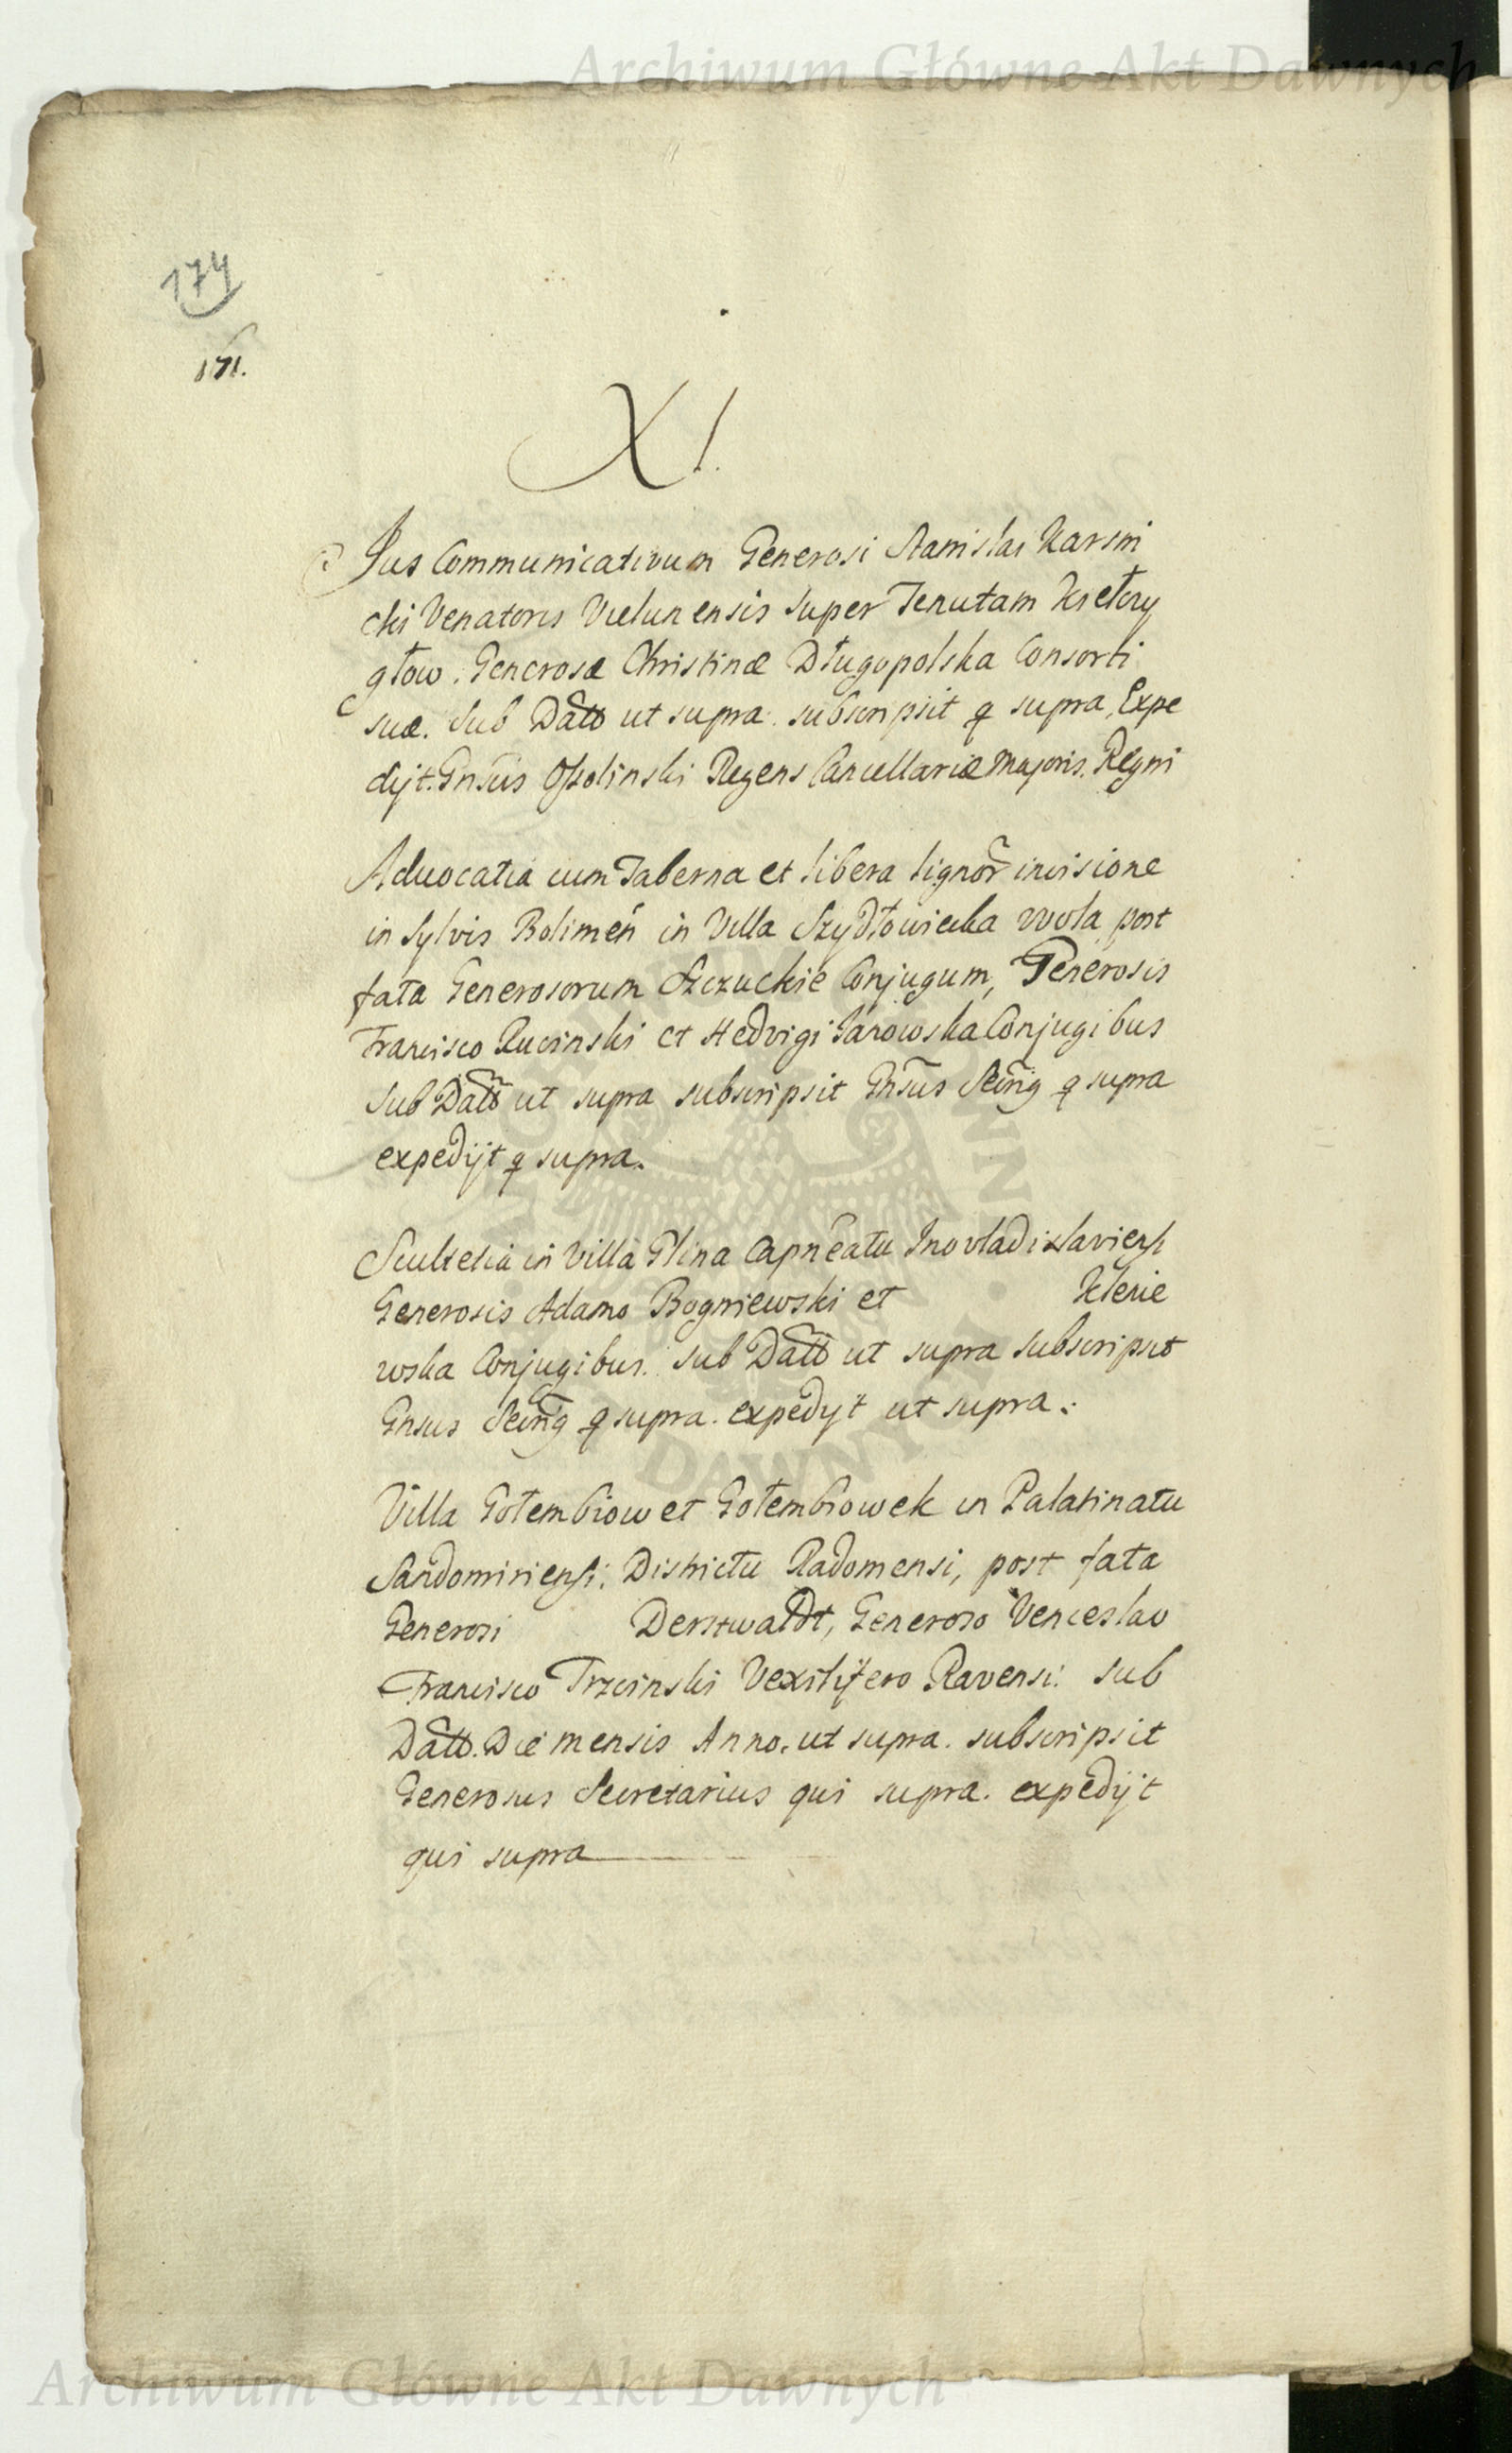 Archiwum Główne Akt Dawnych
174
171.
XI.
Jus Communicativum Generosi Stanislai Karsni
cki Venatoris Vielunensis super Tenutam
głow. Generosæ Christinæ Długopolska Consorti
suæ. Sub Datt ut supra. subscripsit q supra, Expe
dijt. Gnsus Ossolinski Regens Cancellariæ Majoris. Regni
Advocatia cum Taberna et libera lignor incisione
in Sylvis Bolimen in Villa Szydłowiecka Wola post
fata Generosorum Szczuckie Conjugum, Generosis
Francisco Rucinski et Hedvigi Janowska Conjugibus
Sub Datt ut supra subscripsit Gnsus q supra
expedijt q supra.
Scultetia in Villa Glina Capneatu Inovladislaviensi
Generosis Adamo Bogniewski et
wska Conjugibus. Sub Datt ut supra subscripsit
Gnsus q supra. expedyt ut supra.
Villa Gołembiow et Gołembiowek in Palatinatu
Sandomiriensi. Districtu Radomensi, post fata
Generosi Derstwaldt, Generoso Venceslao
Francisco Trzcinski Vexilifero Ravensi. Sub
Datt. Die mensis Anno. ut supra. subscripsit
Generosus Secretarius qui supra. expedijt
qui supra
Archiwum Główne Akt Dawnych